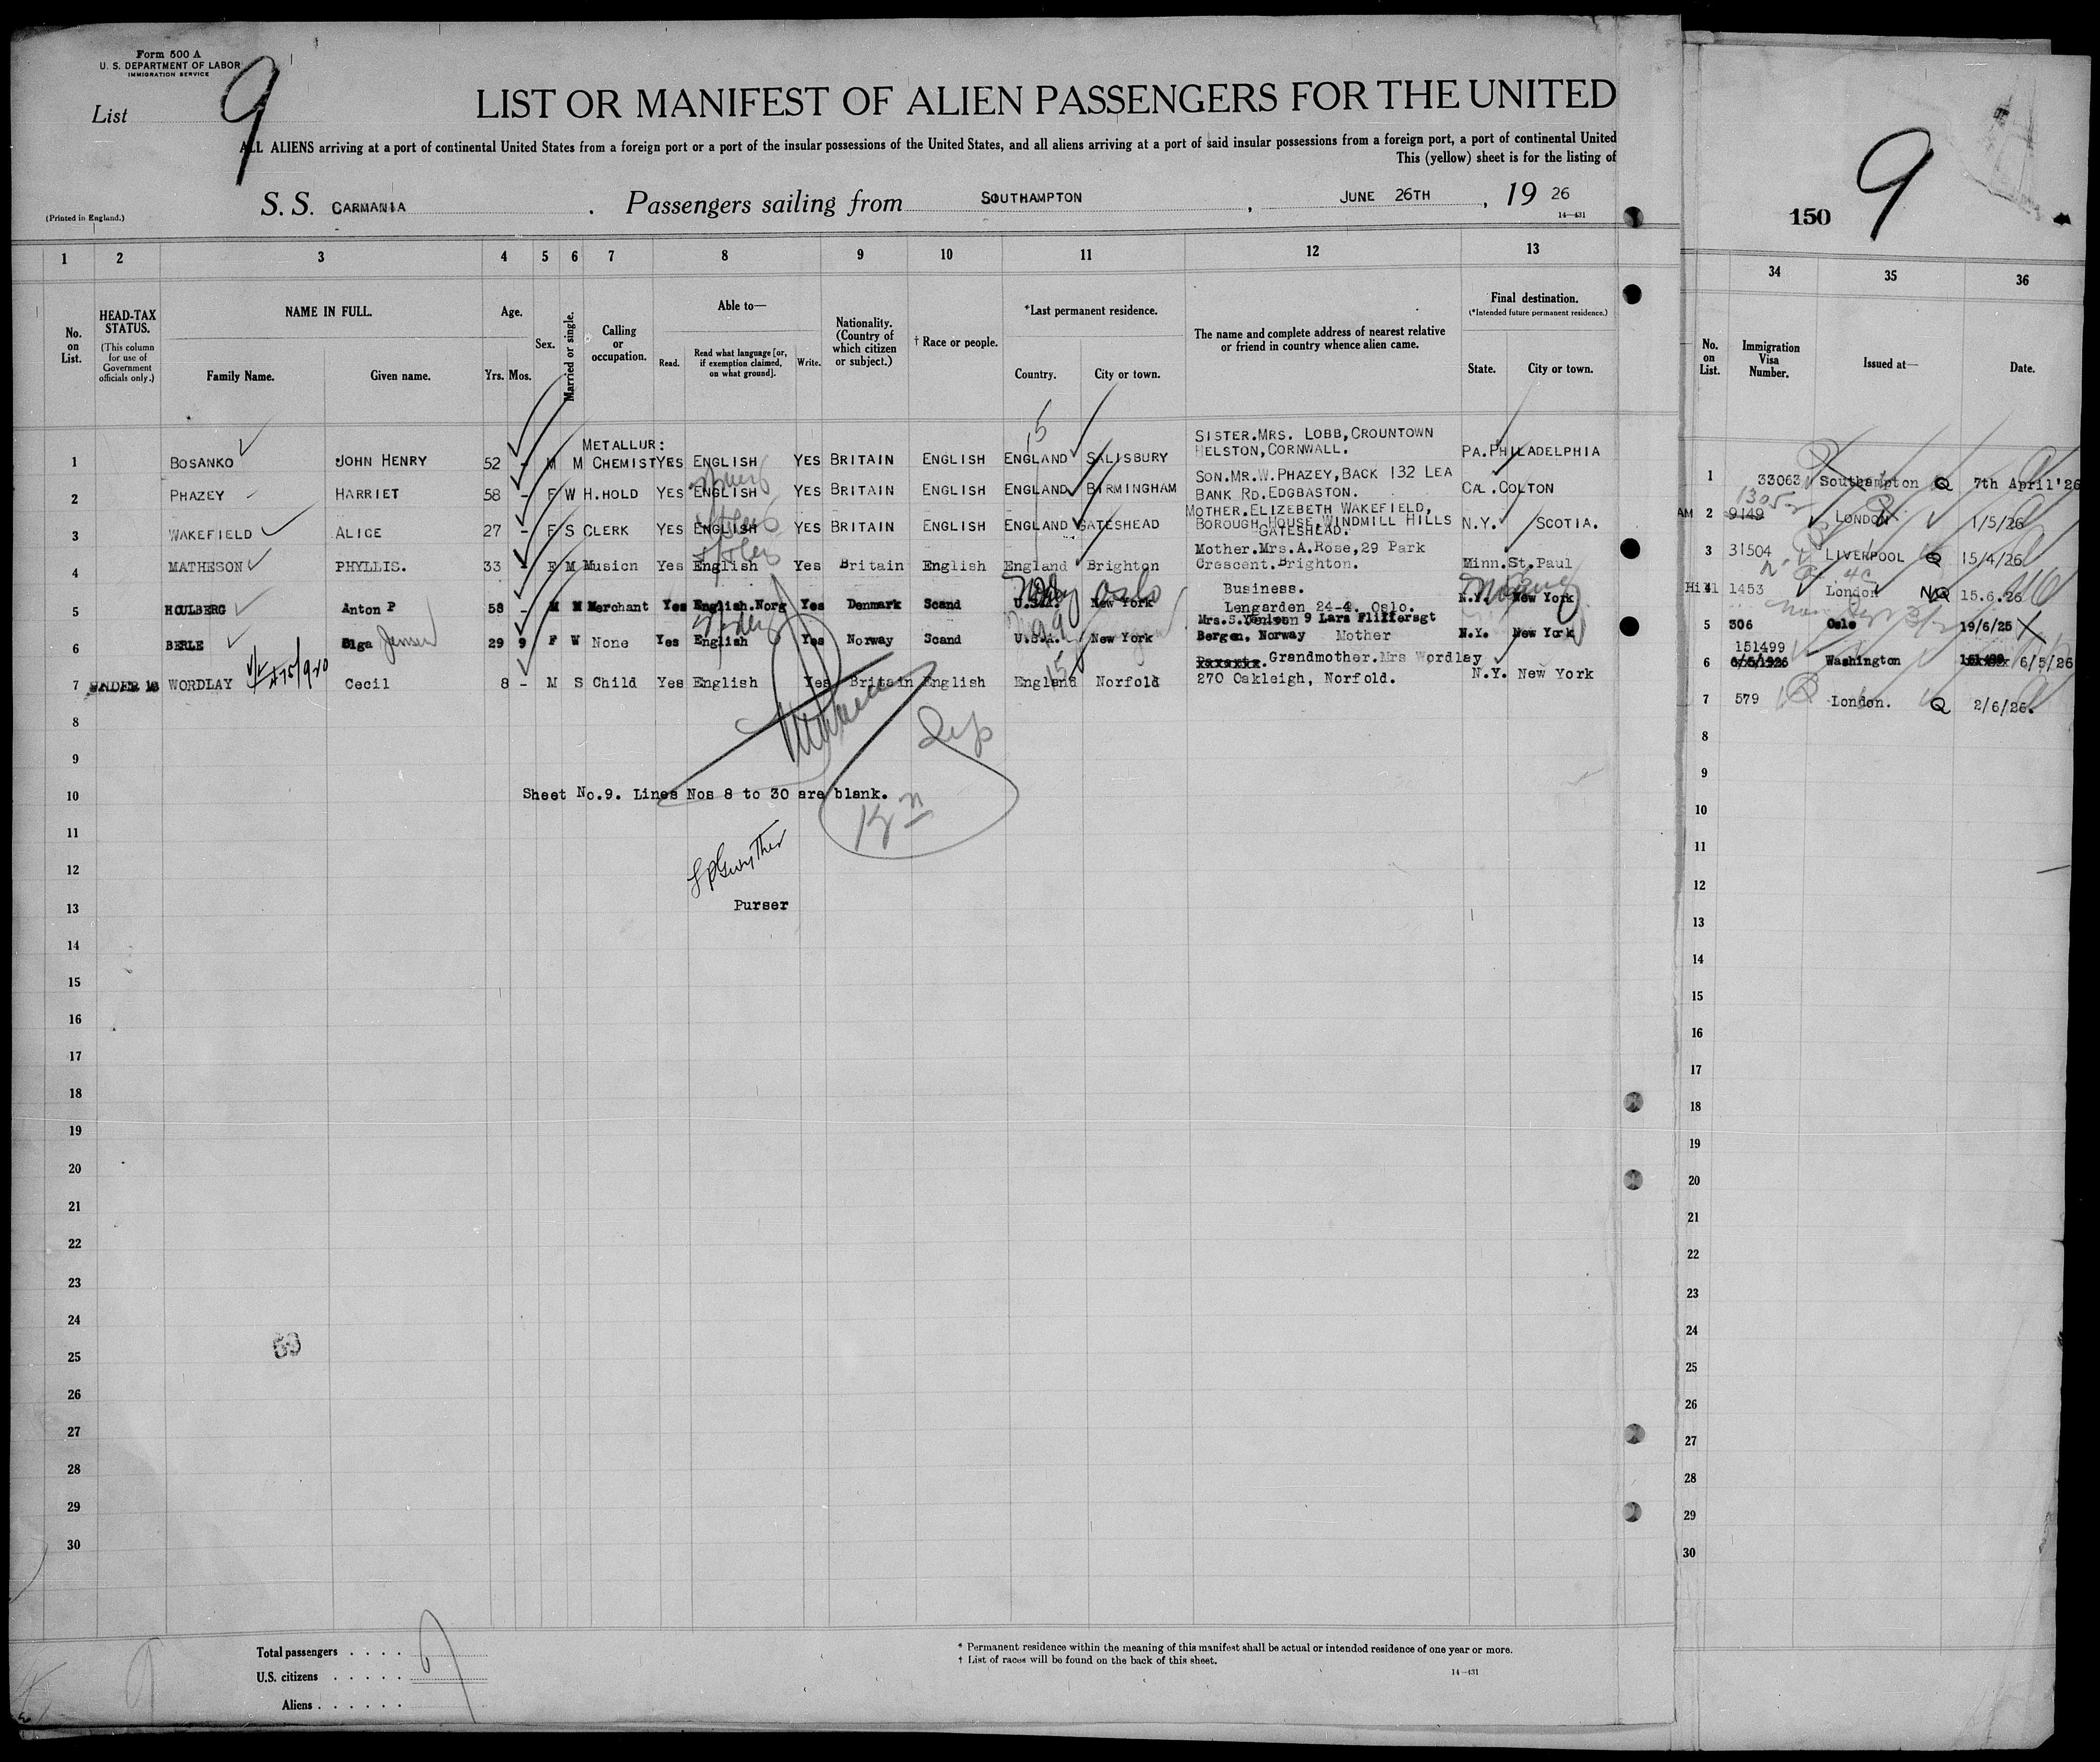 Form 500 A
U. S. DEPARTMENT OF LABOR
IMMIGRATION SERVICE
List 9
LIST OR MANIFEST OF ALIEN PASSENGERS FOR THE UNITED
ALL ALIENS arriving at a port of continental United States from a foreign port or a port of the insular possessions of the United States, and all aliens arriving at a port of said insular possessions from a foreign port, a port of continental United
This (yellow) sheet is for the listing of
S. S. CARMANIA . Passengers sailing from SOUTHAMPTON , JUNE 26TH , 19 26
(Printed in England.)
14—431
150 9
1 2 3 4 5 6 7 8 9 10 11 12 13
34 35 36
No. on List.
HEAD-TAX STATUS.
(This column for use of Government officials only.)
NAME IN FULL.
Family Name. Given name.
Age.
Yrs. Mos.
Sex.
Married or single.
Calling or occupation.
Able to—
Read. Read what language [or, if exemption claimed, on what ground]. Write.
Nationality. (Country of which citizen or subject.)
† Race or people.
*Last permanent residence.
Country. City or town.
The name and complete address of nearest relative or friend in country whence alien came.
Final destination.
(*Intended future permanent residence.)
State. City or town.
No. on List.
Immigration Visa Number.
Issued at—
Date.
1 BOSANKO JOHN HENRY 52 - M M METALLUR: CHEMIST YES ENGLISH YES BRITAIN ENGLISH ENGLAND SALISBURY SISTER.MRS. LOBB,CROUNTOWN HELSTON,CORNWALL. PA.PHILADELPHIA
2 PHAZEY HARRIET 58 - F W H.HOLD YES ENGLISH YES BRITAIN ENGLISH ENGLAND BIRMINGHAM SON.MR.W.PHAZEY,BACK 132 LEA BANK RD.EDGBASTON. CAL.COLTON
3 WAKEFIELD ALICE 27 - F S CLERK YES ENGLISH YES BRITAIN ENGLISH ENGLAND GATESHEAD MOTHER.ELIZEBETH WAKEFIELD, BOROUGH HOUSE,WINDMILL HILLS GATESHEAD. N.Y. SCOTIA.
4 MATHESON PHYLLIS. 33 - F M Musicn Yes English Yes Britain English England Brighton Mother.Mrs.A.Rose,29 Park Crescent.Brighton. Minn.St.Paul
5 HOULBERG Anton P 58 - M M Merchant Yes English.Norg Yes Denmark Scand U.S.A. New York Oslo Business. Lengarden 24-4. Oslo. N.Y. New York
6 BERLE Olga Jensen 29 9 F W None Yes English Yes Norway Scand U.S.A. New York Mrs.S. 9 Lars Bergen, Norway Mother N.Y. New York
7 UNDER 16 WORDLAY Cecil 8 - M S Child Yes English Yes Britain English England Norfold Grandmother.Mrs Wordley 270 Oakleigh, Norfold. N.Y. New York
1 33063 Southampton Q 7th April'26
2 9149 LONDON 1/5/26
3 31504 LIVERPOOL Q 15/4/26
4 1453 London NQ 15.6.26
5 306 Oslo 19/6/25
6 151499 6/5/1926 Washington 6/5/26
7 579 London. Q 2/6/26.
8
9
10 Sheet No.9. Lines Nos 8 to 30 are blank.
11
12
13 Purser
14
15
16
17
18
19
20
21
22
23
24
25
26
27
28
29
30
53
Total passengers . . . .
U.S. citizens . . . . .
Aliens . . . . . .
* Permanent residence within the meaning of this manifest shall be actual or intended residence of one year or more.
† List of races will be found on the back of this sheet.
14—431